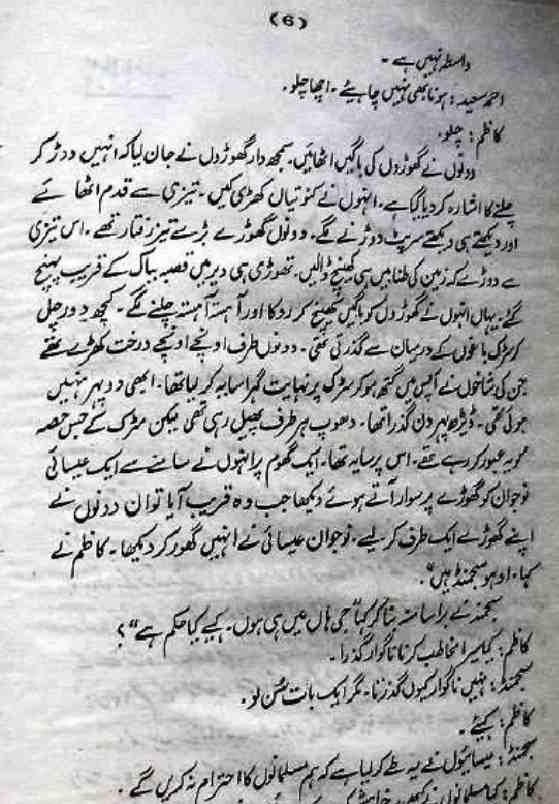 (6)
واسطہ نہیں ہے۔
احمد سعید: ہونا بھی نہیں چاہیئے۔ اچھا چلو۔
کاظم: چلو۔
دونوں نے گھوڑوں کی باگیں اٹھائیں۔ سمجھ دار گھوڑوں نے جان لیا کہ انہیں دوڑ کر
چلنے کا اشارہ کر دیا گیا ہے۔ انہوں نے کنوتیاں کھڑی کیں۔ تیزی سے قدم اٹھائے
اور دیکھتے ہی دیکھتے سرپٹ دوڑنے لگے۔ دونوں گھوڑے بڑے تیز رفتار تھے۔ اس تیزی
سے دوڑے کہ زمین کی طنابیں ہی کھینچ ڈالیں۔ تھوڑی ہی دیر میں قصبہ بباک کے قریب پہنچ
گئے۔ یہاں انہوں نے گھوڑوں کو باگیں کھینچ کر روکا اور آہستہ آہستہ چلنے لگے۔ کچھ دور چل
کر سڑک باغوں کے درمیان سے گذرتی تھی۔ دونوں طرف اونچے اونچے درخت کھڑے تھے
جن کی شاخوں نے آپس میں گتھ ہو کر سڑک پر نہایت گہرا سایہ کر لیا تھا۔ ابھی دوپہر نہیں
ہوئی تھی۔ ڈیڑھ پہر دن گذرا تھا۔ دھوپ ہر طرف پھیلی رہی تھی لیکن سڑک کے جس حصہ
کو یہ عبور کر رہے تھے۔ اس پر سایہ تھا۔ ایک گھوم پر انہوں نے سامنے سے ایک عیسائی
نوجوان کو گھوڑے پر سوار آتے ہوئے دیکھا جب وہ قریب آیا تو ان دونوں نے
اپنے گھوڑے ایک طرف کر لیے۔ نوجوان عیسائی نے انہیں گھور کر دیکھا۔ کاظم نے
کہا، اوہو سجمنڈ ہیں"۔
سجمنڈ نے برا سا منہ بنا کر کہا "جی ہاں میں ہی ہوں۔ کہیے کیا حکم ہے"؟
کاظم: کیا میرا مخاطب کرنا ناگوار گذرا۔
سجمنڈ: نہیں ناگوار کیوں گذرتا۔ مگر ایک بات سُن لو۔
کاظم: کہیئے۔
سجمنڈ: عیسائیوں نے یہ طے کر لیا ہے کہ ہم مسلمانوں کا احترام نہ کریں گے۔
کاظم: کیا مسلمانوں نے کبھی